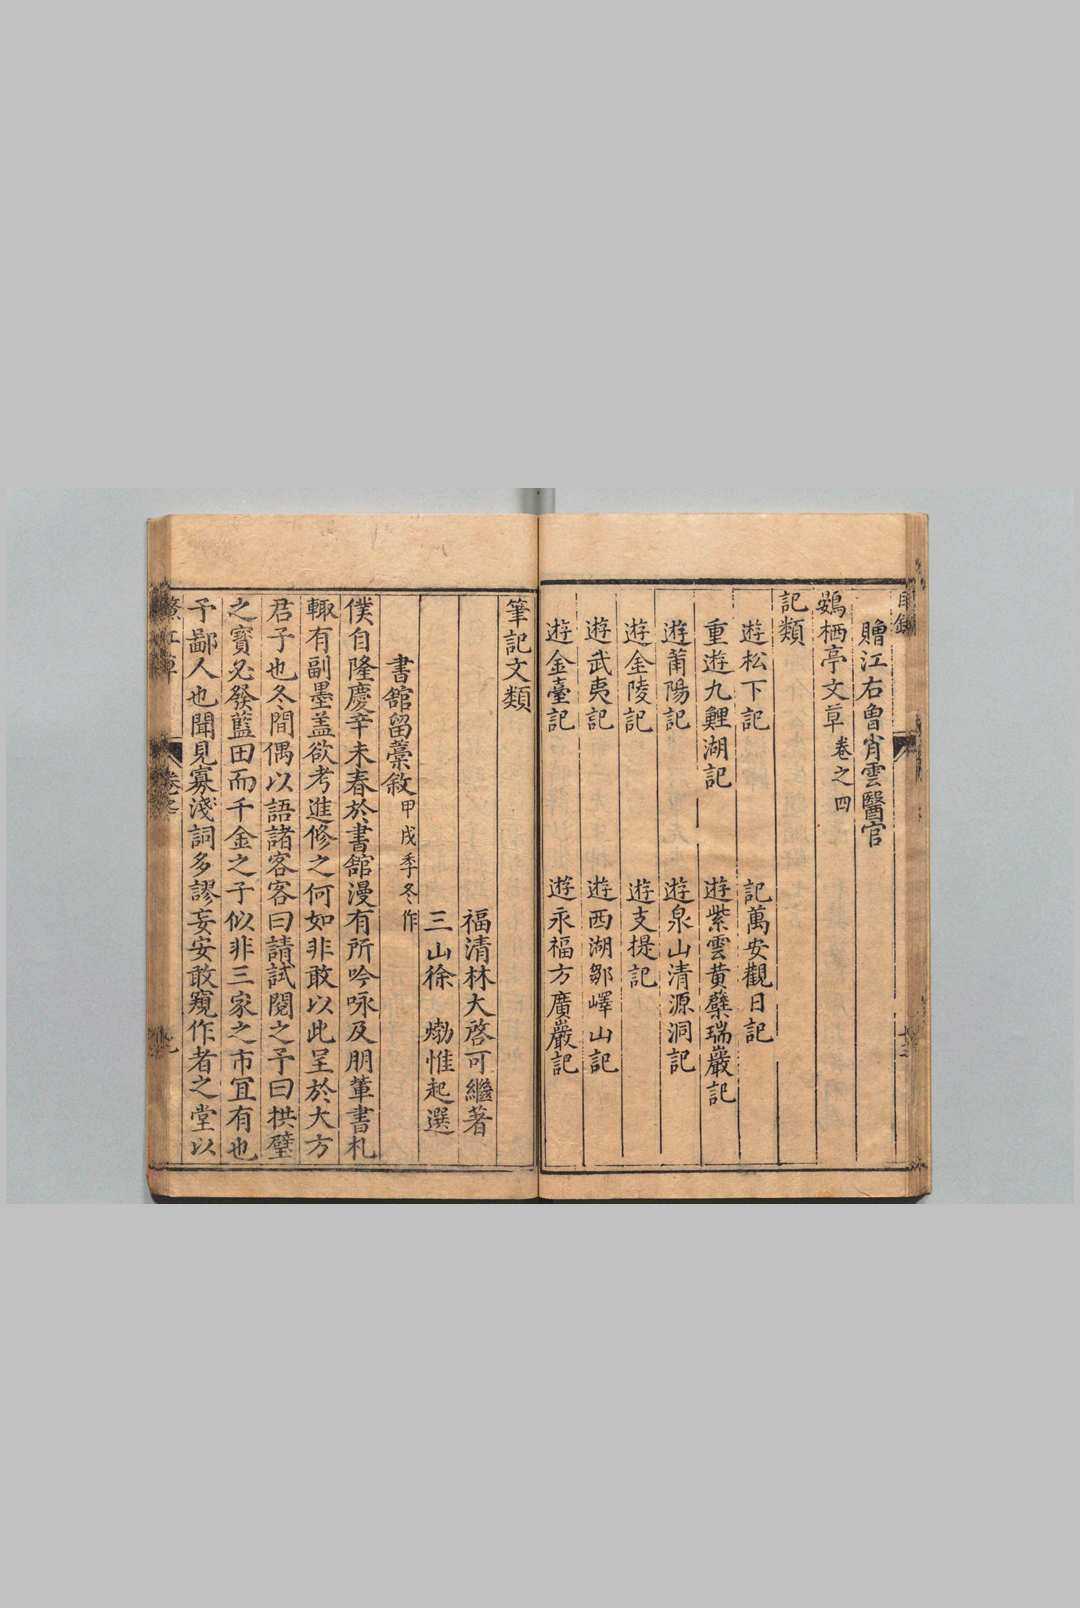 目錄
贈江右魯肖雲醫官
鷃栖亭文草 卷之四
記類
遊松下記 記萬安觀日記
重遊九鯉湖記 遊紫雲黃蘗瑞巖記
遊莆陽記 遊泉山清源洞記
遊金陵記 遊支提記
遊武夷記 遊西湖鄒嶧山記
遊金臺記 遊永福方廣巖記
筆記文類
福清林大啓可繼著
三山徐 𤊹惟起選
書舘留藁敘 甲戌季冬作
僕自隆慶辛未春於書舘漫有所吟咏及朋輩書札
輙有副墨盖欲考進修之何如非敢以此呈於大方
君子也冬間偶以語諸客客曰請試閱之予曰拱璧
之寶必發藍田而千金之子似非三家之市冝有也
予鄙人也聞見寡淺詞多謬妄安敢窺作者之堂以